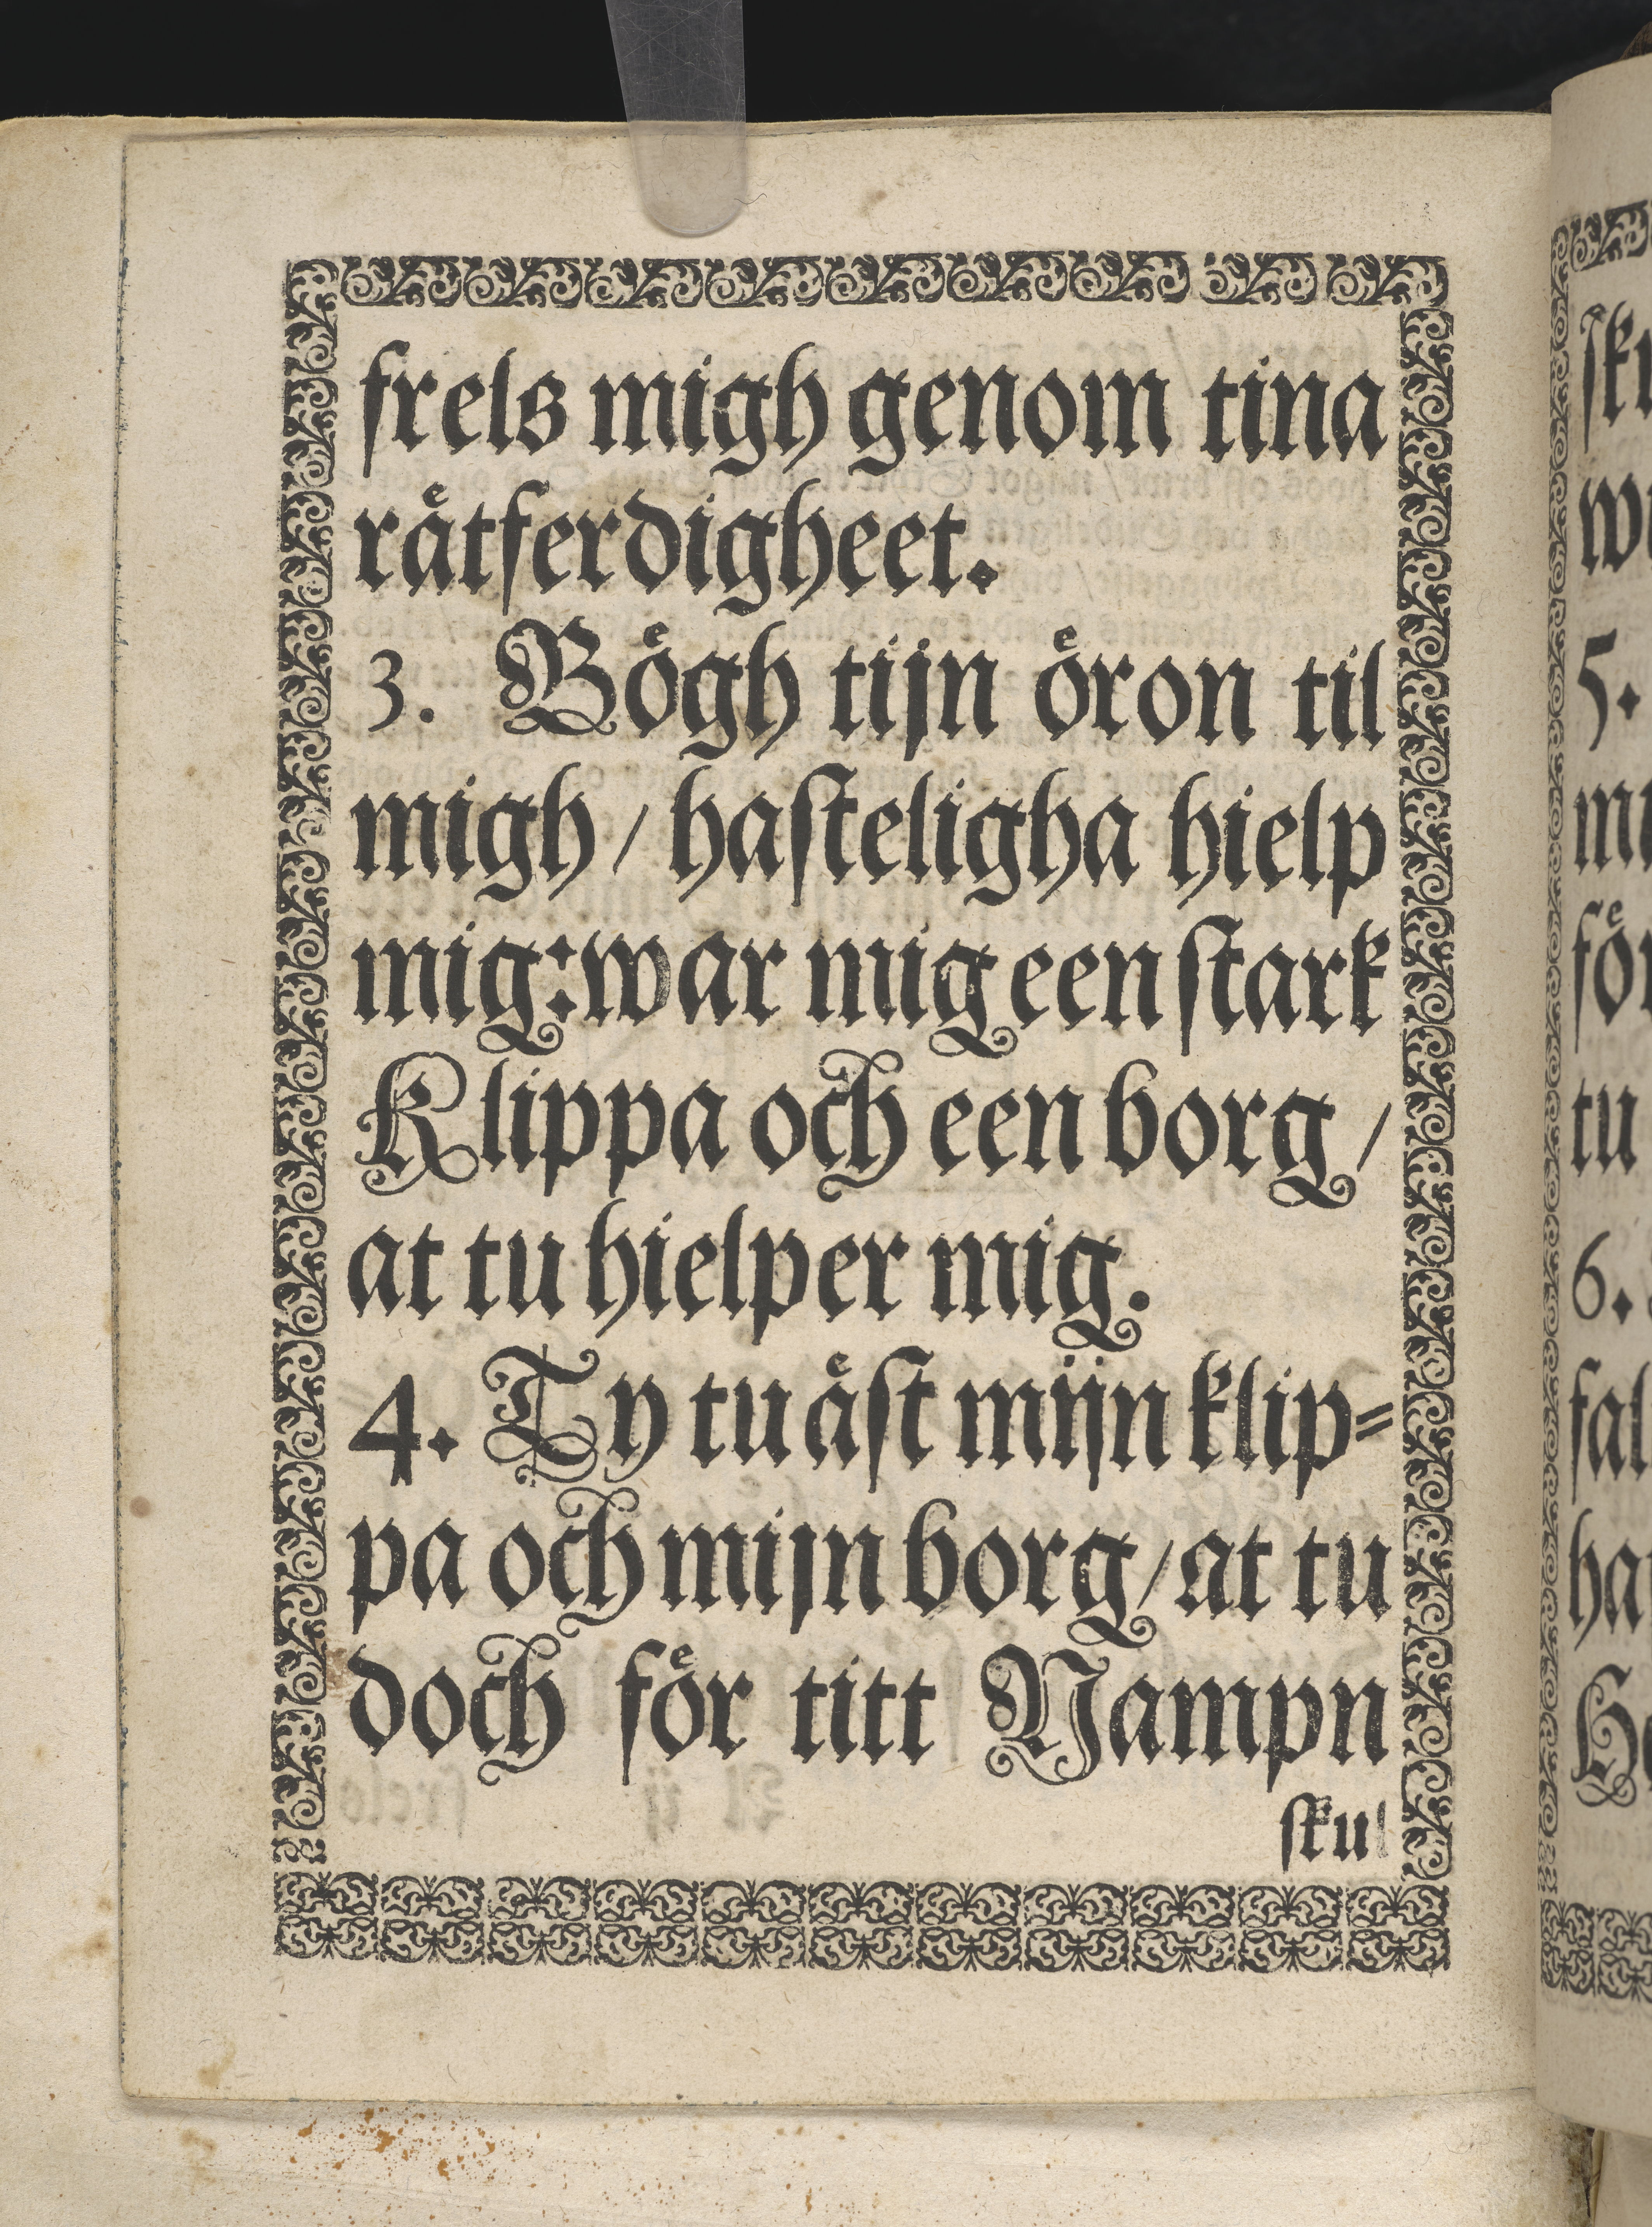 frels migh genom tina
råtferdigheet.
3. Bögh tijn öron til
migh / hasteligha hielp
mig: war mig een stark
Klippa och een borg /
at tu hielper mig.
4. Ty tu äst mijn klip=
pa och mijn borg / at tu
doch för titt Nampn
skul
5.
för
tu
6.